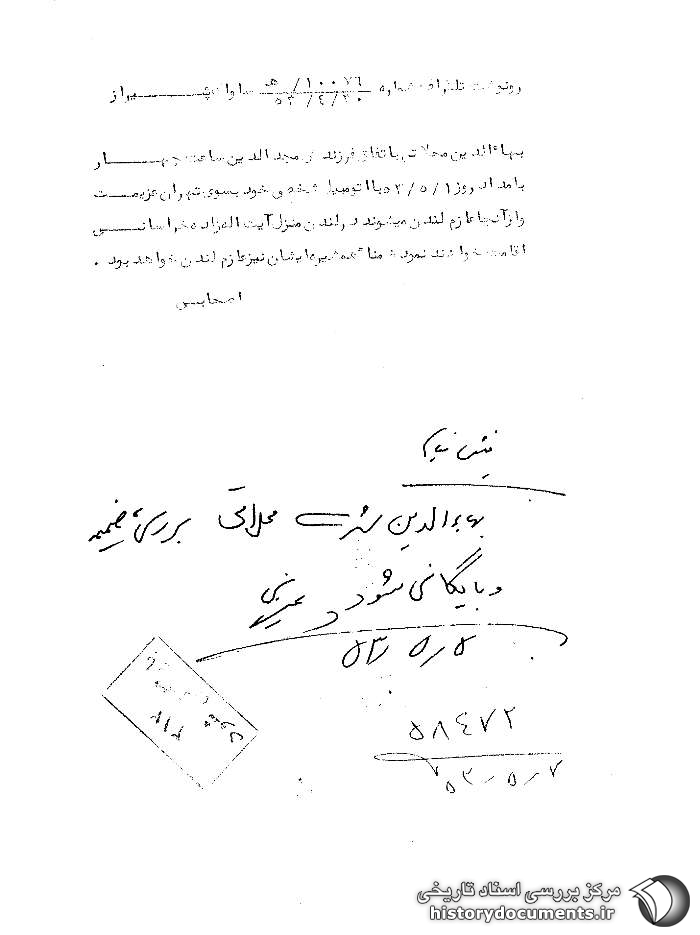 رونوشت تلگراف شماره ۱۰۰۷۶/هـ ۵۳/۴/۳۰ ساواک شیراز
بهاءالدین محلاتی باتفاق فرزندش مجدالدین ساعت چهار
بامداد روز ۵۳/۵/۱ با اتومبیل شخصی خود بسوی تهران عزیمت
و از آنجا عازم لندن میشوند در لندن منزل آیت اله زاده خراسانی
اقامت خواهند نمود ضمنا همشیره ایشان نیز عازم لندن خواهد بود .
بهاءالدین محلاتی بررسی، ضمیمه
و بایگانی شود
۵۳/۵/۵
۵۸۴۷۲
۵۳/۵/۷
۳۱۲
مرکز بررسی اسناد تاریخی
historydocuments.ir